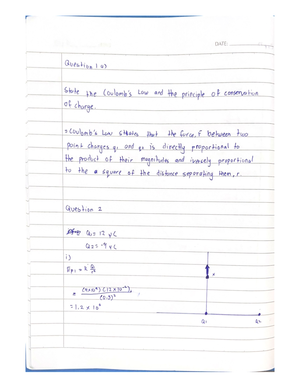 DATE
Question 1 a)
State the Coulomb's Law and the principle of conservation
of charge.
Coulomb's Law states that the force, F between two
point charges q1 and q2 is directly proportional to
the product of their magnitudes and inversely proportional
to the square of the distance separating them, r.
Question 2
Q1 = 12 μC
Q2 = -4 μC
i)
= (9×10⁹)(12×10⁻⁶)
= 1.2 × 10
Q1
Q2